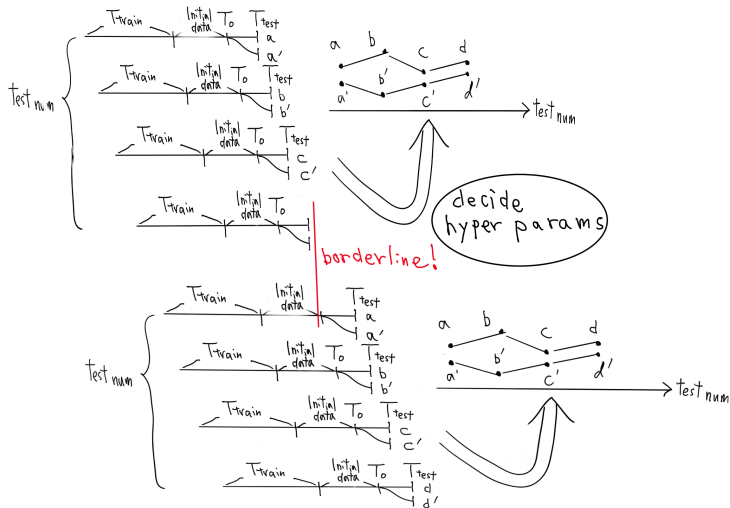 Ttrain Initial data T0 Ttest
a
a'
Ttrain Initial data T0 Ttest
b
b'
Ttrain Initial data T0 Ttest
c
c'
Ttrain Initial data T0
testnum
a b c d
a' b' c' d'
testnum
decide
hyper params
borderline!
Ttrain Initial data Ttest
a
a'
Ttrain Initial data T0 Ttest
b
b'
Ttrain Initial data T0 Ttest
c
c'
Ttrain Initial data T0 Ttest
d
d'
testnum
a b c d
a' b' c' d'
testnum